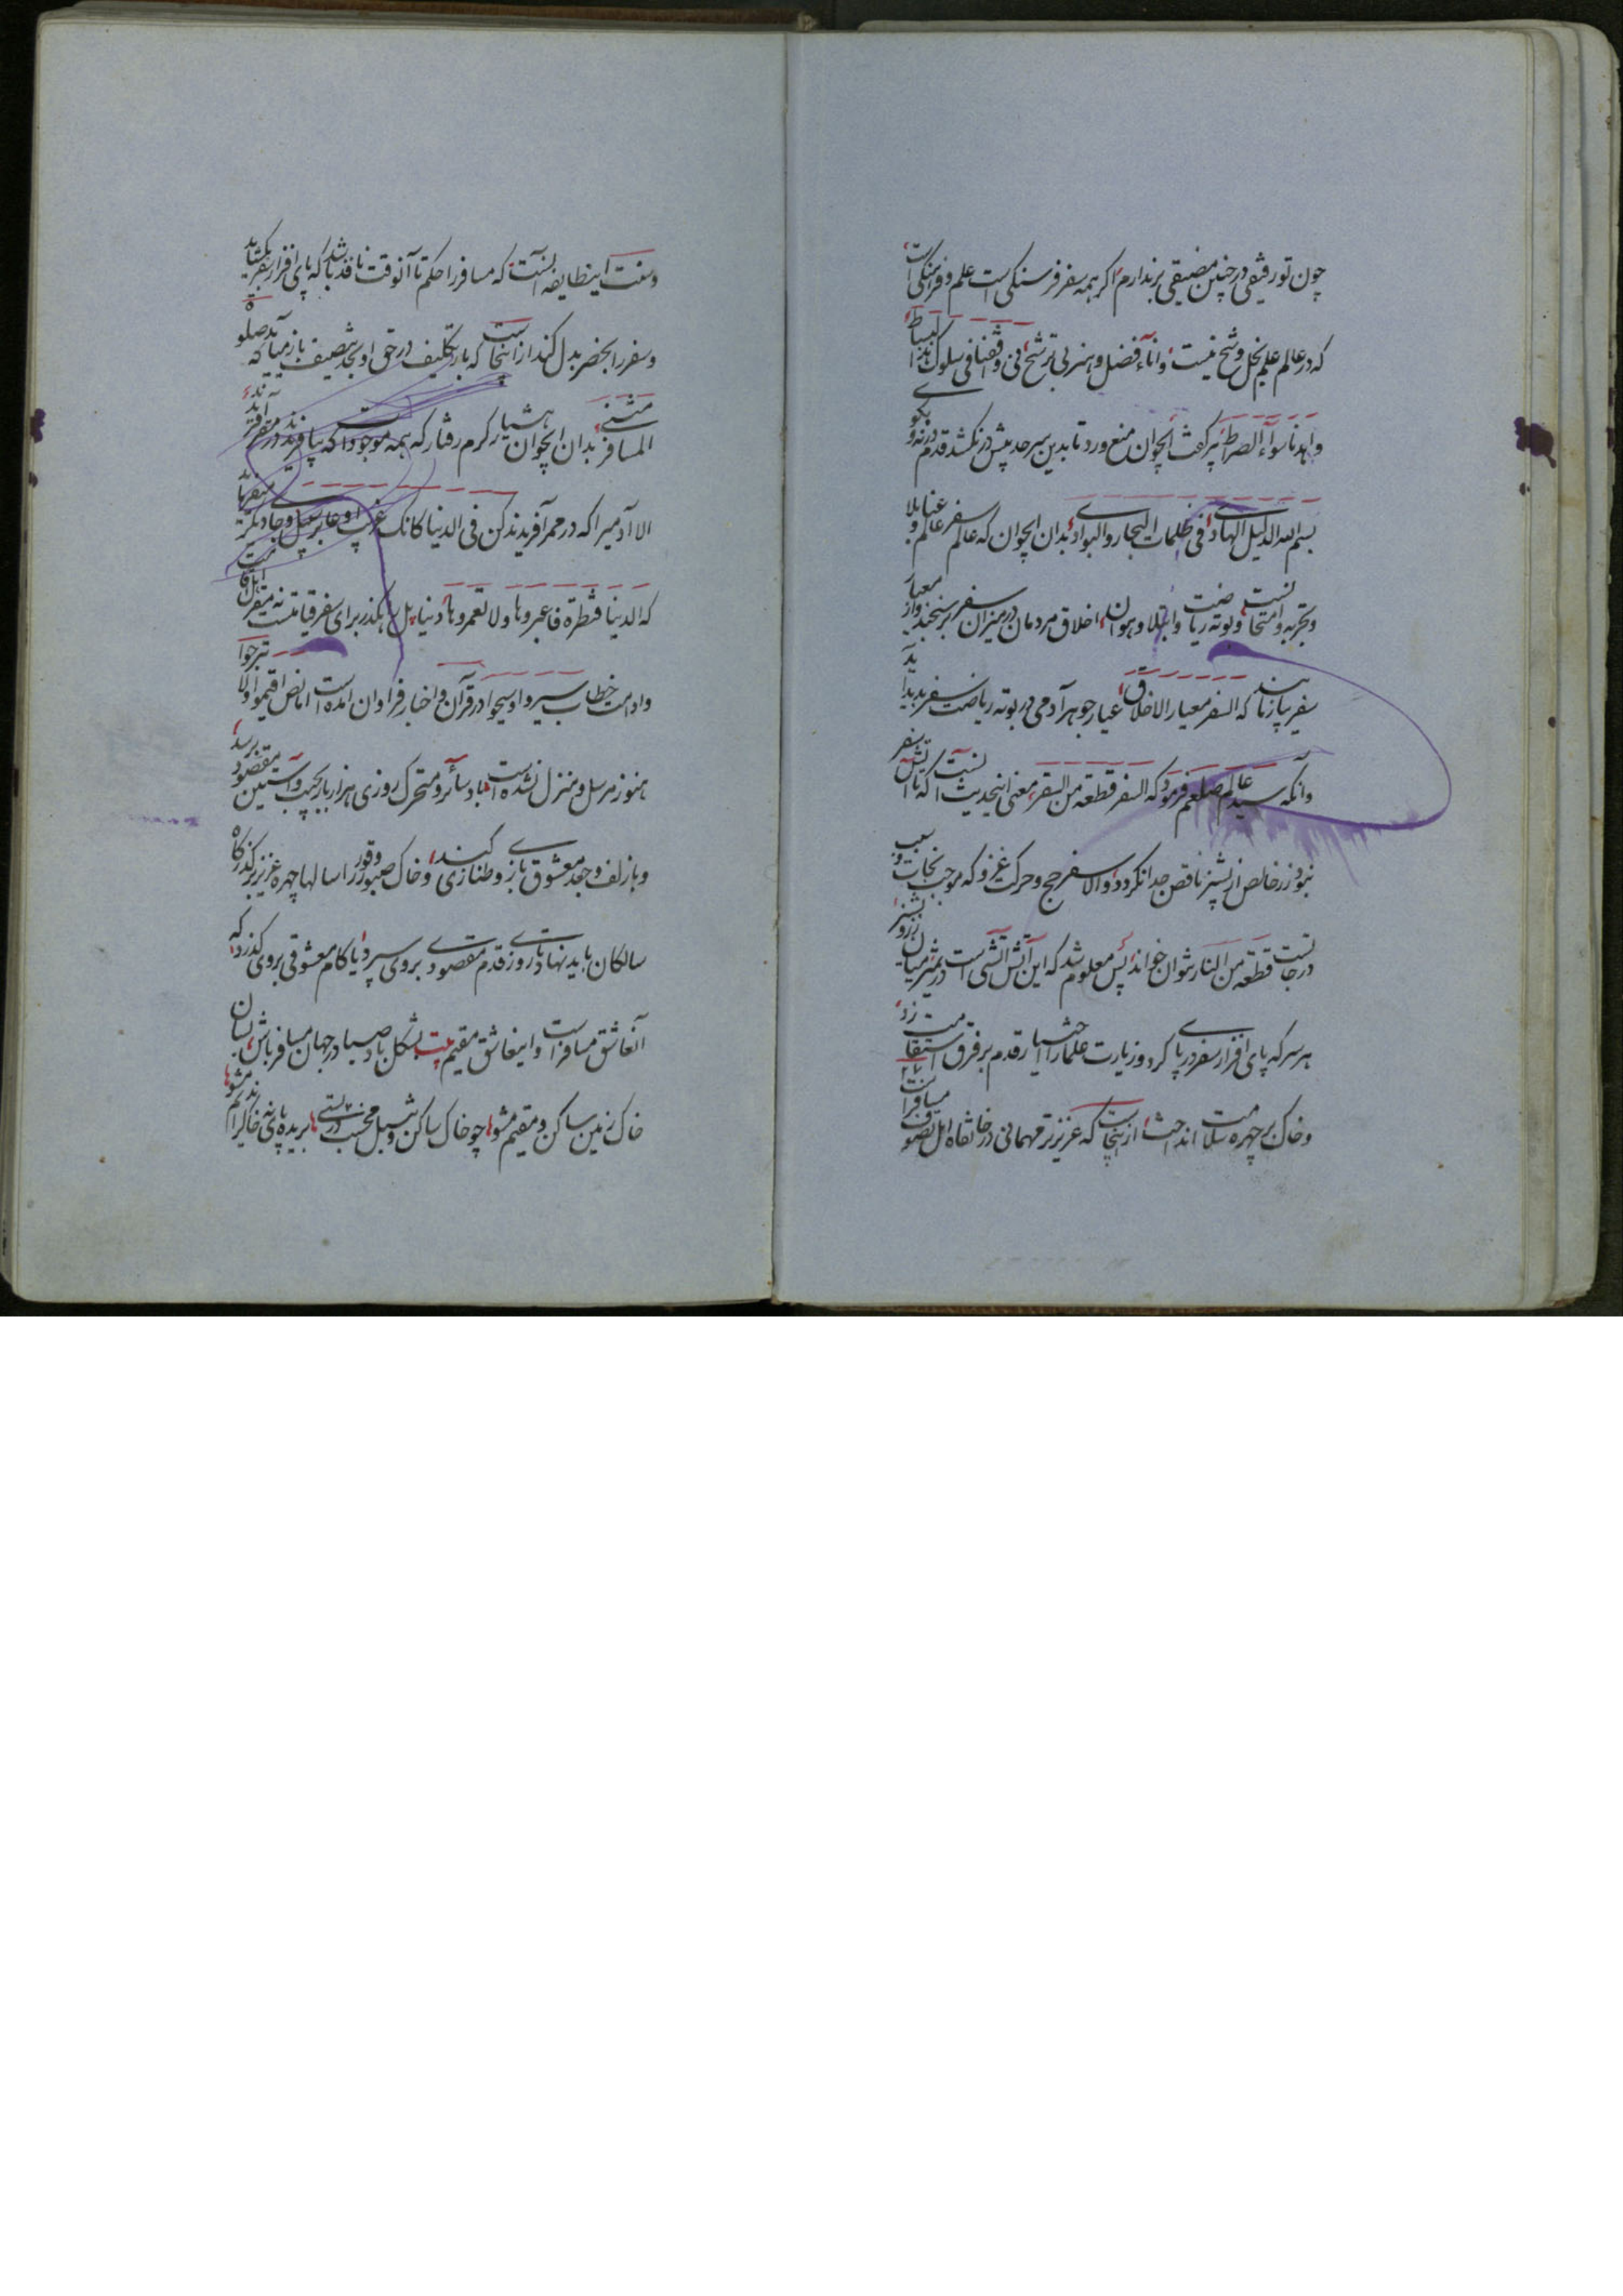 چون تو رفیقی در چنین مضیقی برندارم اگر همه سفر فرسنگی است علم و فرهنگی است
که در عالم علم بخل و شح نیست و اناء فضل و هنر بی ترشح نی وقفنا فی سلوک هذا البساط
واهدنا سواء الصراط پیر گفت ایجوان منع ورد تا بدین سرحد بیش در نکشد قدم درنه و بگوی
بسم الله الدلیل الهادی فی ظلمات البحار والبوادی بدان ایجوان که عالم سفر عالم عنا و بلا
و تجربه و امتحانست و بوته ریاضت و ابتلا و هوان اخلاق مردمان در میزان سفر بر سنجند و از معیار
سفر باز نمایند که السفر معیار الاخلاق عیار جوهر آدمی در بوته ریاضت سفر پدید آید
و آنکه سید عالم صلعم فرمود که السفر قطعه من السقر معنی اینحدیث آنست که تا آتش سفر
نبود زر خالص از پشیز ناقص جدا نگردد والا سفر حج و حرکت غزو که موجب نجات و سبب
درجاتست قطعه من النار نتوان خواند پس معلوم شد که این آتش آتشی است ممیز میان زر و پشیز
هر سر که پای افزار سفر در پای کرد و زیارت علما را اختیار قدم بر فرق استقامت زد
و خاک بر چهره سلامت انداخت از اینجاست که عزیزتر مهمانی در خانقاه اهل تصوف مسافرانند
و سنت اینطایفه آنست که مسافر را حکم تا آنوقت نافذ باشد که پای افزار سفر بگشاید
و سفر را بحضر بدل کند از اینجاست که بار تکلیف در حق او بحد تنصیف باز می‌آید که صلوة
المسافر مثنی بدان ایجوان هشیار گرم رفتار که همه موجودات که بیافریدند در مقر آفریدند
الا آدمیرا که در ممر آفریدند کن فی الدنیا کانک غریب او عابر سبیل و جای دیگر میفرماید
که الدنیا قنطرة فاعبروها ولا تعمروها دنیا پل رهگذر برای سفر قیامتست نه مقر اهل اقامت
و اوامر خطاب سیروا و سیحوا در قرآن و اخبار فراوان آمده است اما نص اقیموا ولا تبرحوا
هنوز مرسل و منزل نشده است باد سائر و متحرک روزی هزار بار بجیب و آستین مقصود برسد
و با زلف و جعد معشوق بازی و طنازی کند و خاک صبور وقور را سالها چهره عزیز بر گذرگاه
سالکان باید نهاد تا روزی قدم مقصودی بروی سپرد یا کام معشوقی بروی گذرد که
آنعاشق مسافر است و اینعاشق مقیم بیت بشکل باد صبا در جهان مسافر باش بسان
خاک زمین ساکن و مقیم مشو چو خاک ساکن و شبل مخسب در پستی بریده پای نه خاک را ندیم مشو